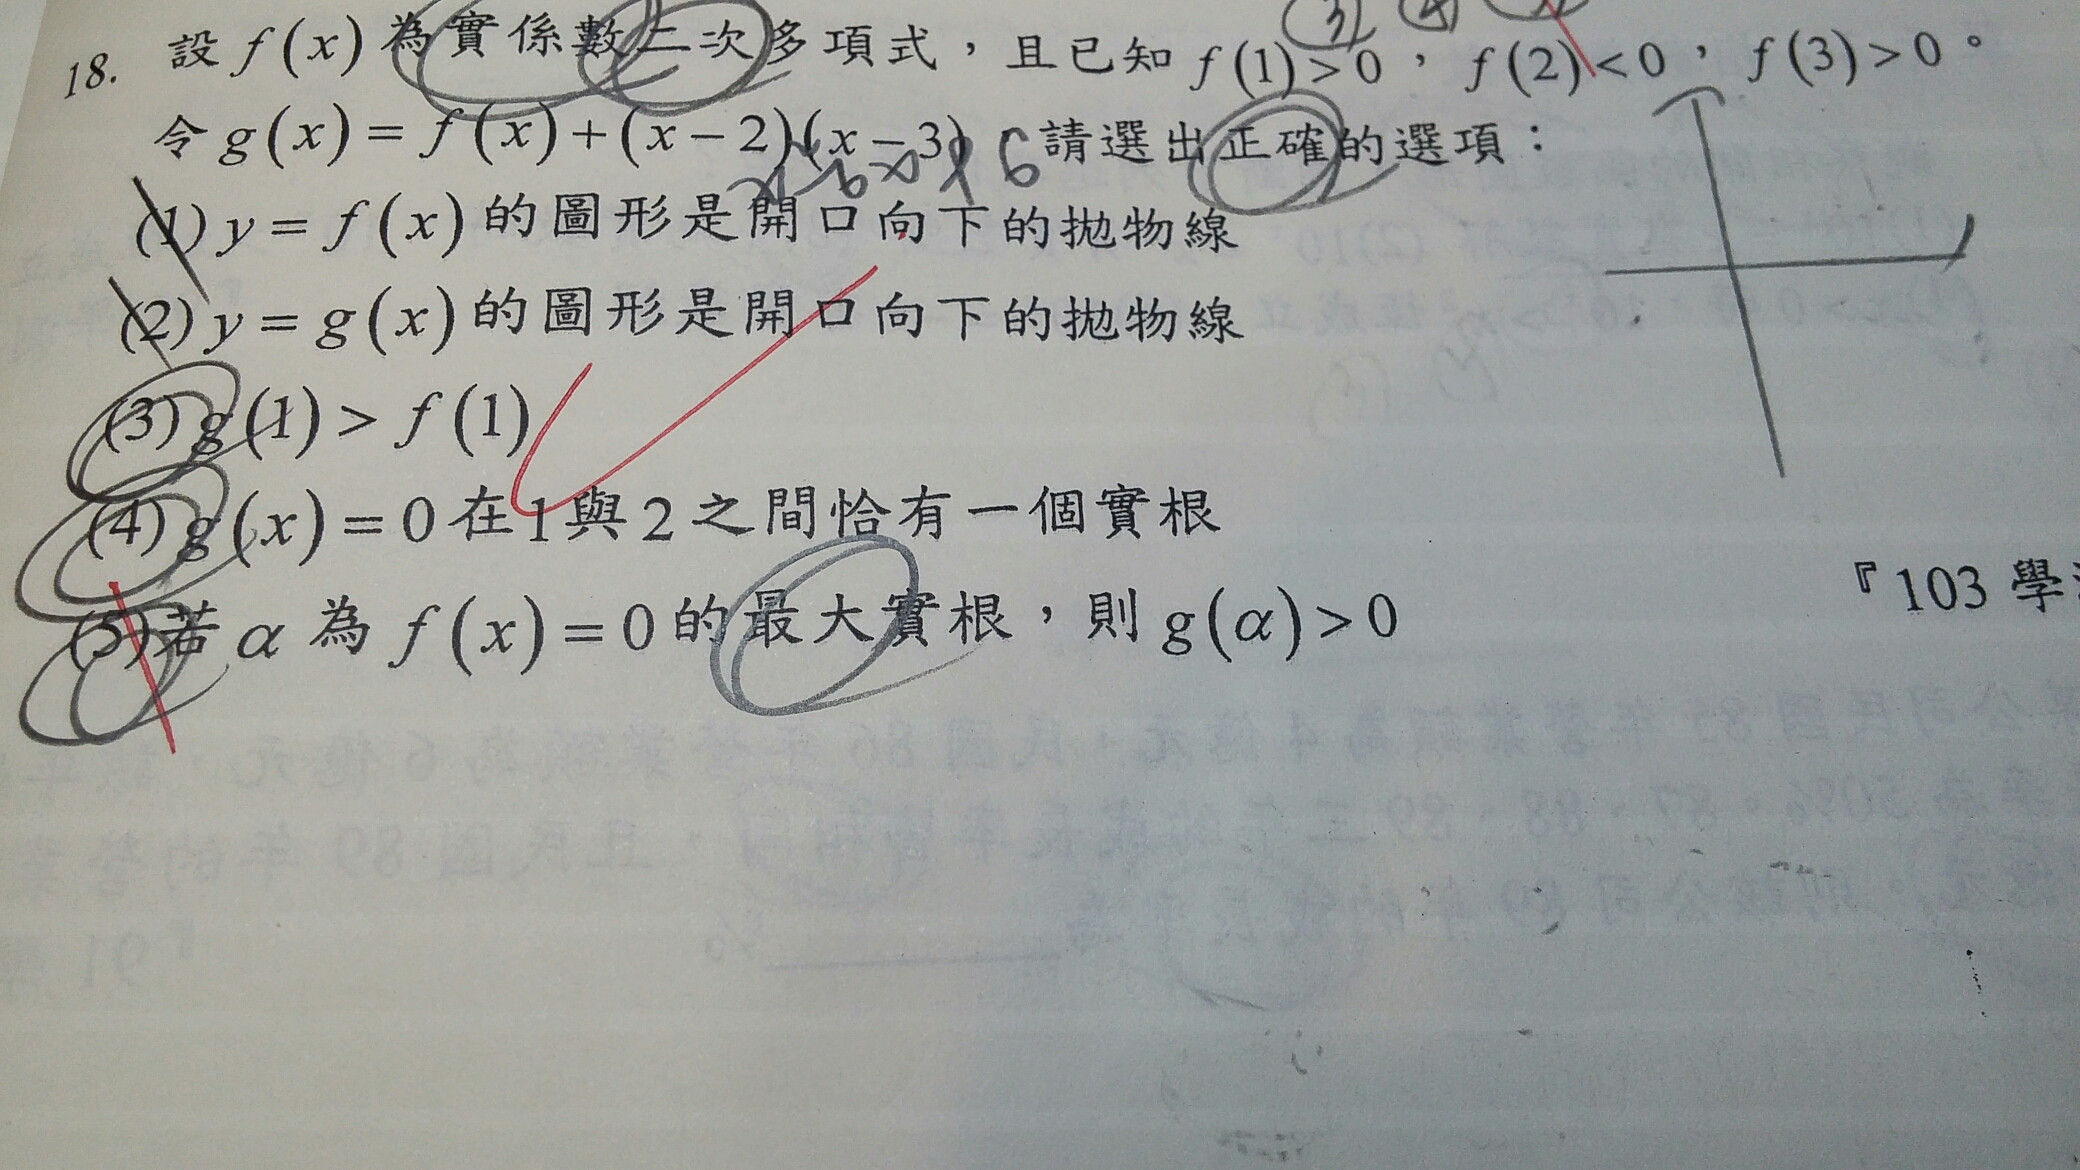 (3) (4)
18. 設 f(x) 為實係數二次多項式，且已知 f(1)>0，f(2)<0，f(3)>0。
令 g(x)=f(x)+(x-2)(x-3)，請選出正確的選項：
(1) y=f(x) 的圖形是開口向下的拋物線
(2) y=g(x) 的圖形是開口向下的拋物線
(3) g(1)>f(1)
(4) g(x)=0 在 1 與 2 之間恰有一個實根
(5) 若 α 為 f(x)=0 的最大實根，則 g(α)>0
『103 學